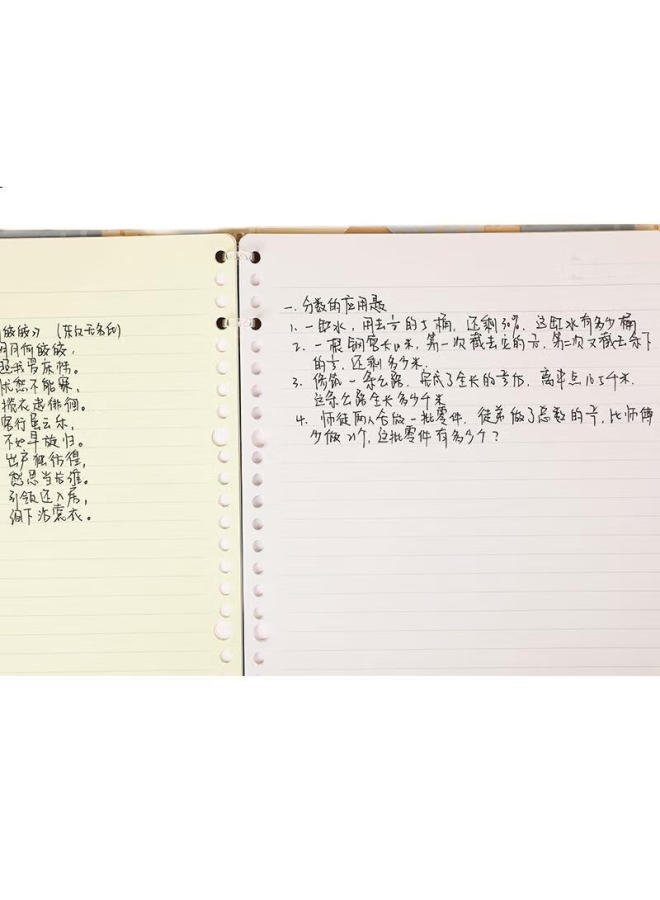 皎皎》（东汉无名氏）
明月何皎皎，
照我罗床帏。
忧愁不能寐，
揽衣起徘徊。
客行虽云乐，
不如早旋归。
出户独彷徨，
愁思当告谁。
引领还入房，
泪下沾裳衣。
一. 分数的应用题
1. 一缸水，用去 的5桶，还剩30%，这缸水有多少桶
2. 一根钢管长10米，第一次截去它的 ，第二次又截去余下
的 ，还剩多少米.
3. 修筑一条公路，完成了全长的 后，离中点16.5千米
这条公路全长多少千米
4. 师徒两人合做一批零件，徒弟做了总数的 ，比师傅
少做21个，这批零件有多少个？